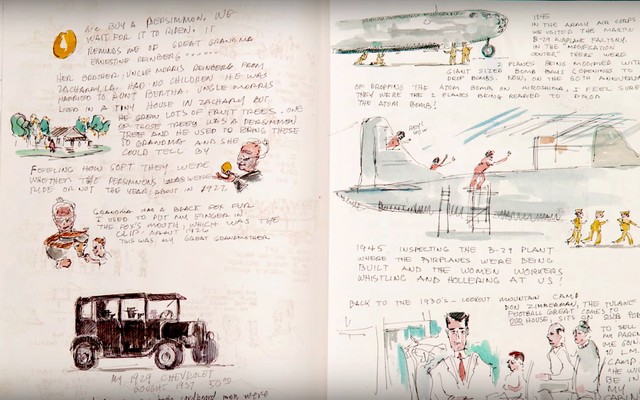 WE BUY A PERSIMMON, WE
WAIT FOR IT TO RIPEN. IT
REMINDS ME OF GREAT GRANDMA
ERNESTINE REINBERG
HER BROTHER, UNCLE MORRIS REINBERG FROM
ZACHARY, LA. HAD NO CHILDREN. HE WAS
MARRIED TO AUNT BERTHA. UNCLE MORRIS
LIVED IN A TINY HOUSE IN ZACHARY BUT
HE GREW LOTS OF FRUIT TREES. ONE
OF THOSE TREES WAS A PERSIMMON
TREE AND HE USED TO BRING THOSE
TO GRANDMA AND SHE
COULD TELL BY
FEELING HOW SOFT THEY WERE
WHETHER THE PERSIMMONS WERE
RIPE OR NOT THE YEAR: ABOUT IN 1927.
GRANDMA HAD A BLACK FOX FUR
I USED TO PUT MY FINGER IN
THE FOX'S MOUTH, WHICH WAS THE
CLIP. ABOUT 1926
THIS WAS MY GREAT GRANDMOTHER
MY 1929 CHEVROLET
BOUGHT 1937 50⁰⁰
MEN WERE
1945
IN THE ARMY AIR CORPS
WE VISITED THE MASSIVE
B-29 AIRPLANE FACTORY.
IN THE "MODIFICATION
CENTER" THERE WERE
2 PLANES BEING MODIFIED WITH
GIANT SIZED BOMB BAYS (OPENING TO
DROP BOMBS. NOW, ON THE 60TH ANNIVERSARY
OF DROPPING THE ATOM BOMB ON HIROSHIMA, I FEEL SURE
THEY WERE THE 2 PLANES BEING READIED TO DROP
THE ATOM BOMB!
HEY!
1945 INSPECTING THE B-29 PLANT
WHERE THE AIRPLANES WERE BEING
BUILT AND THE WOMEN WORKERS
WHISTLING AND HOLLERING AT US!
BACK TO THE 1930'S - LOOKOUT MOUNTAIN CAMP
DON ZIMMERMAN, THE TULANE
FOOTBALL GREAT COMES TO
OUR HOUSE, SITS ON OUR
TO SELL
MY PAREN
ME GOIN
TO L.M.
CAMP
"HE WILL
BE IN
MY
CABIN